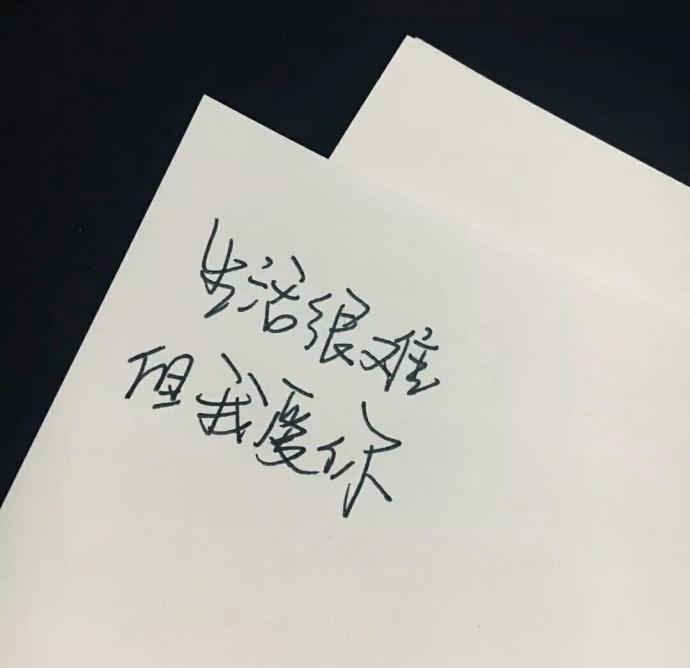 生活很难
但我爱你